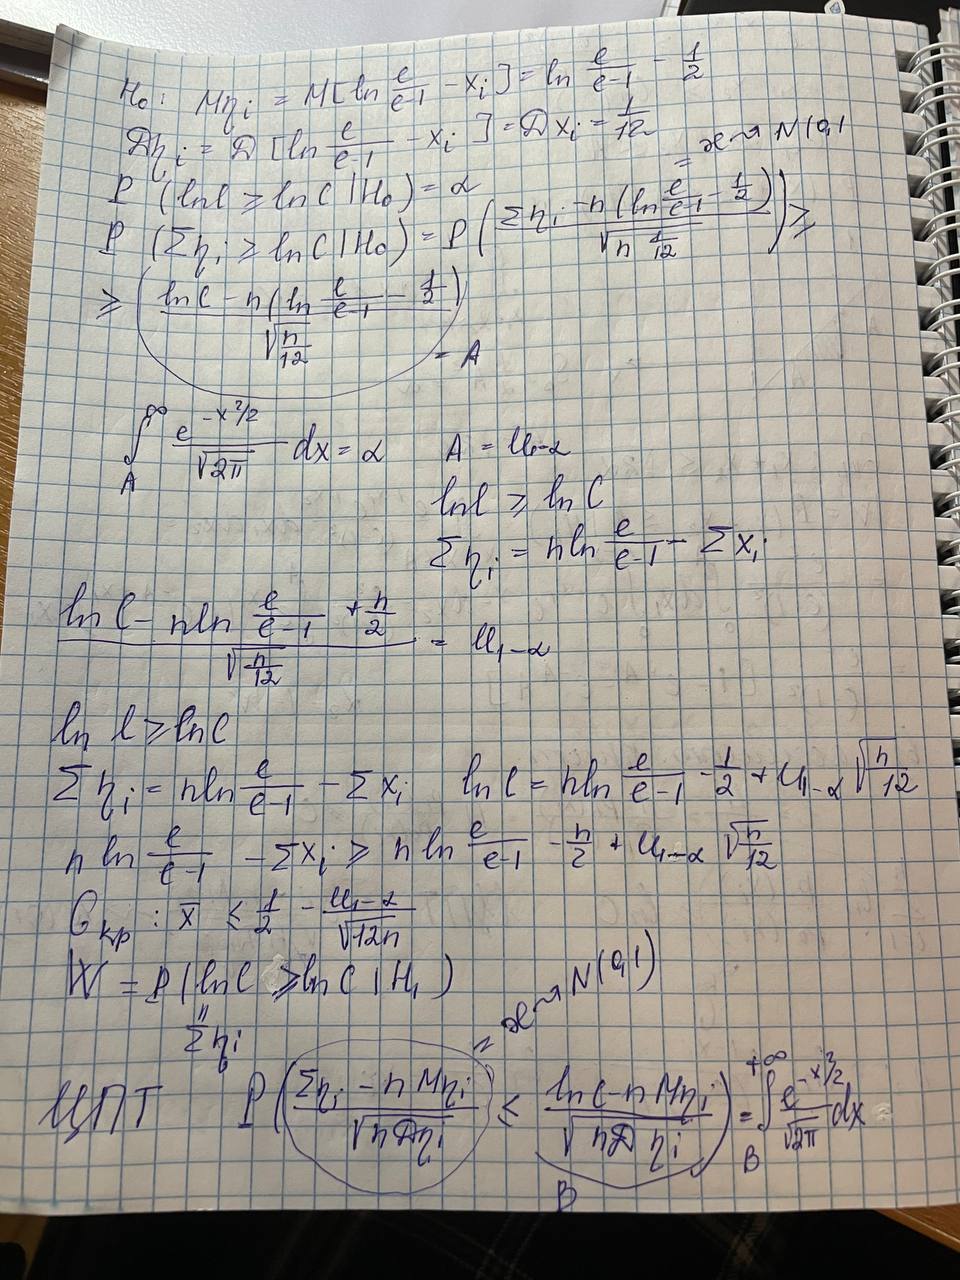 H₀: Mηᵢ = M[ln e/(e-1) - xᵢ] = ln e/(e-1) - 1/2
Dηᵢ = D[ln e/(e-1) - xᵢ] = Dxᵢ = 1/12
P(ln l ≥ ln C | H₀) = α
= æ ~ N(0,1)
P(Σηᵢ ≥ ln C | H₀) = P((Σηᵢ - n(ln e/(e-1) - 1/2))/√(n 1/12)) ≥
≥ (ln C - n(ln e/(e-1) - 1/2))/√(n/12) = A
∫_A^∞ e^(-x²/2)/√(2π) dx = α A = u₁₋α
ln l ≥ ln C
Σηᵢ = n ln e/(e-1) - Σxᵢ
(ln C - n ln e/(e-1) + n/2)/√(n/12) = u₁₋α
ln l ≥ ln C
Σηᵢ = n ln e/(e-1) - Σxᵢ ln C = n ln e/(e-1) - 1/2 + u₁₋α √(n/12)
n ln e/(e-1) - Σxᵢ ≥ n ln e/(e-1) - n/2 + u₁₋α √(n/12)
G кр: x̄ ≤ 1/2 - u₁₋α/√(12n)
W = P(ln l ≥ ln C | H₁)
"
Σηᵢ
= æ ~ N(0,1)
ЦПТ P((Σηᵢ - n Mηᵢ)/√(n Dηᵢ) ≤ (ln C - n Mηᵢ)/√(n D ηᵢ)) = ∫_B^+∞ e^(-x²/2)/√(2π) dx
B